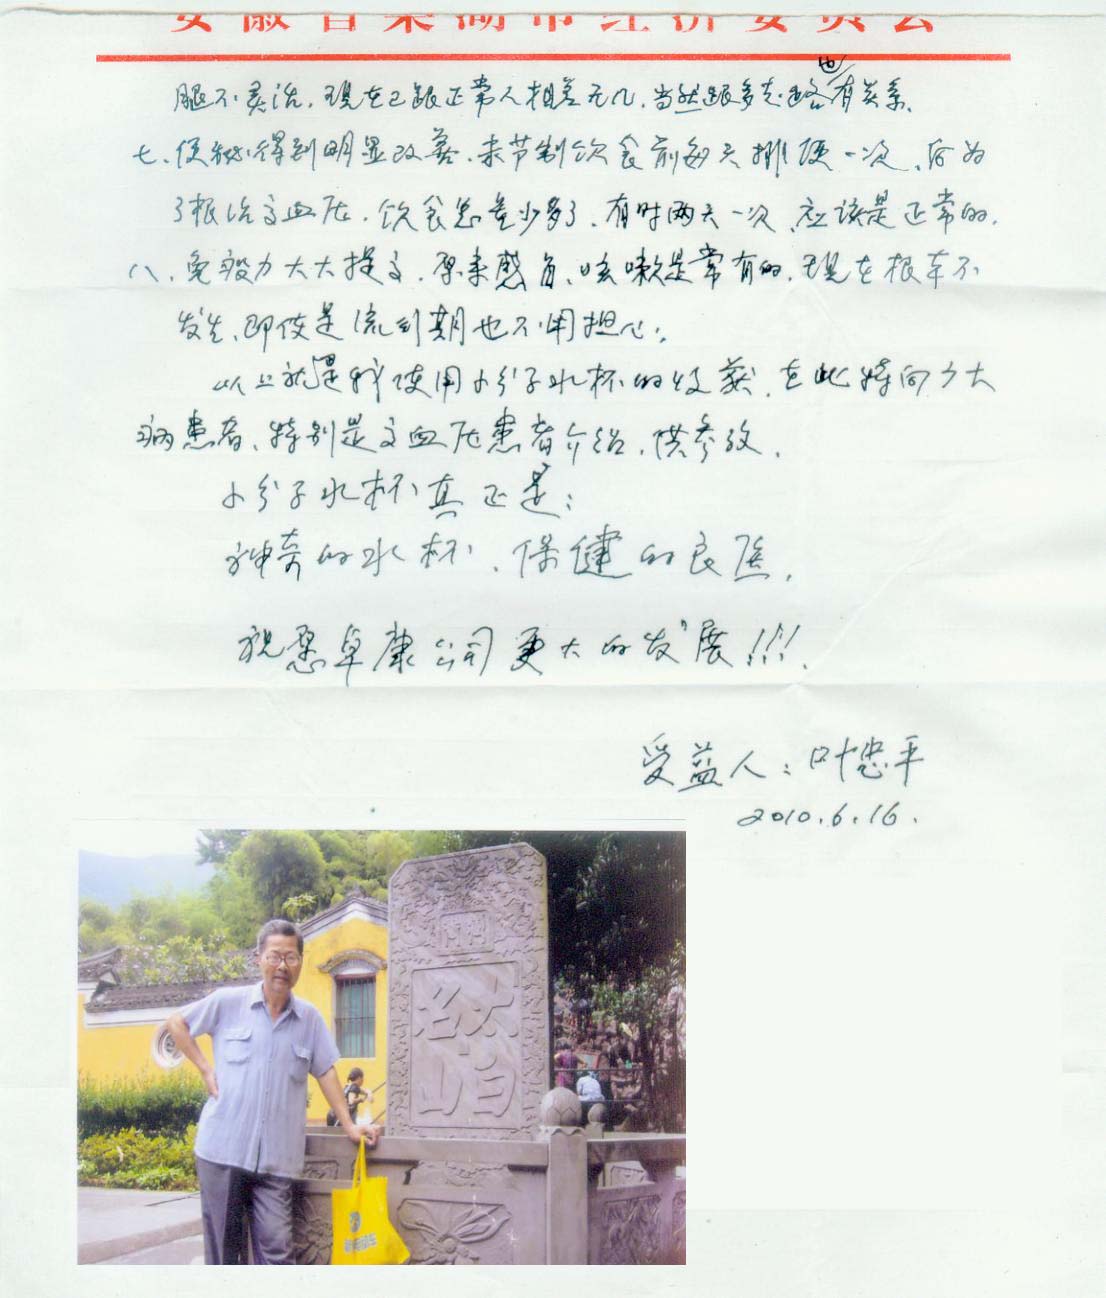 安徽省巢湖市经济委员会
腿不灵活，现在已跟正常人相差无几，当然跟多走路也有关系。
七、便秘得到明显改善，未节制饮食前每天排便一次，后为
了根治高血压，饮食总量少多了，有时两天一次，应该是正常的。
八、免疫力大大提高，原来感冒、咳嗽是常有的，现在根本不
发生，即使是流行期也不用担心。
以上就是我使用小分子水杯的收获，在此特向广大
病患者、特别是高血压患者介绍，供参考。
小分子水杯真正是：
神奇的水杯、保健的良医。
祝愿卓康公司更大的发展!!!
受益人：叶忠平
2010.6.16.
太白
名山